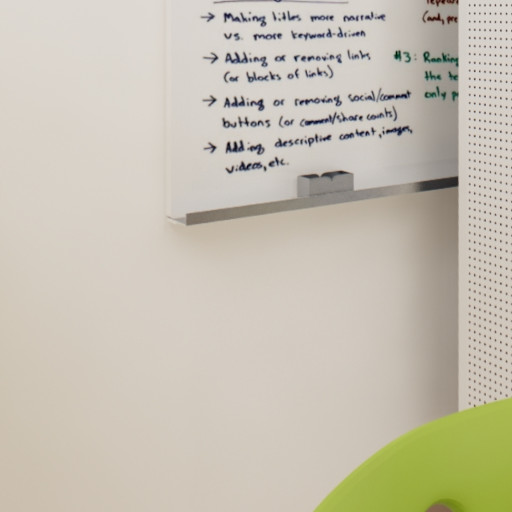 → Making titles more narrative
vs. more keyword-driven
→ Adding or removing links
(or blocks of links)
→ Adding or removing social/comment
buttons (or comment/share counts)
→ Adding descriptive content, images,
videos, etc.
(and, pre
#3: Ranking
the te
only p